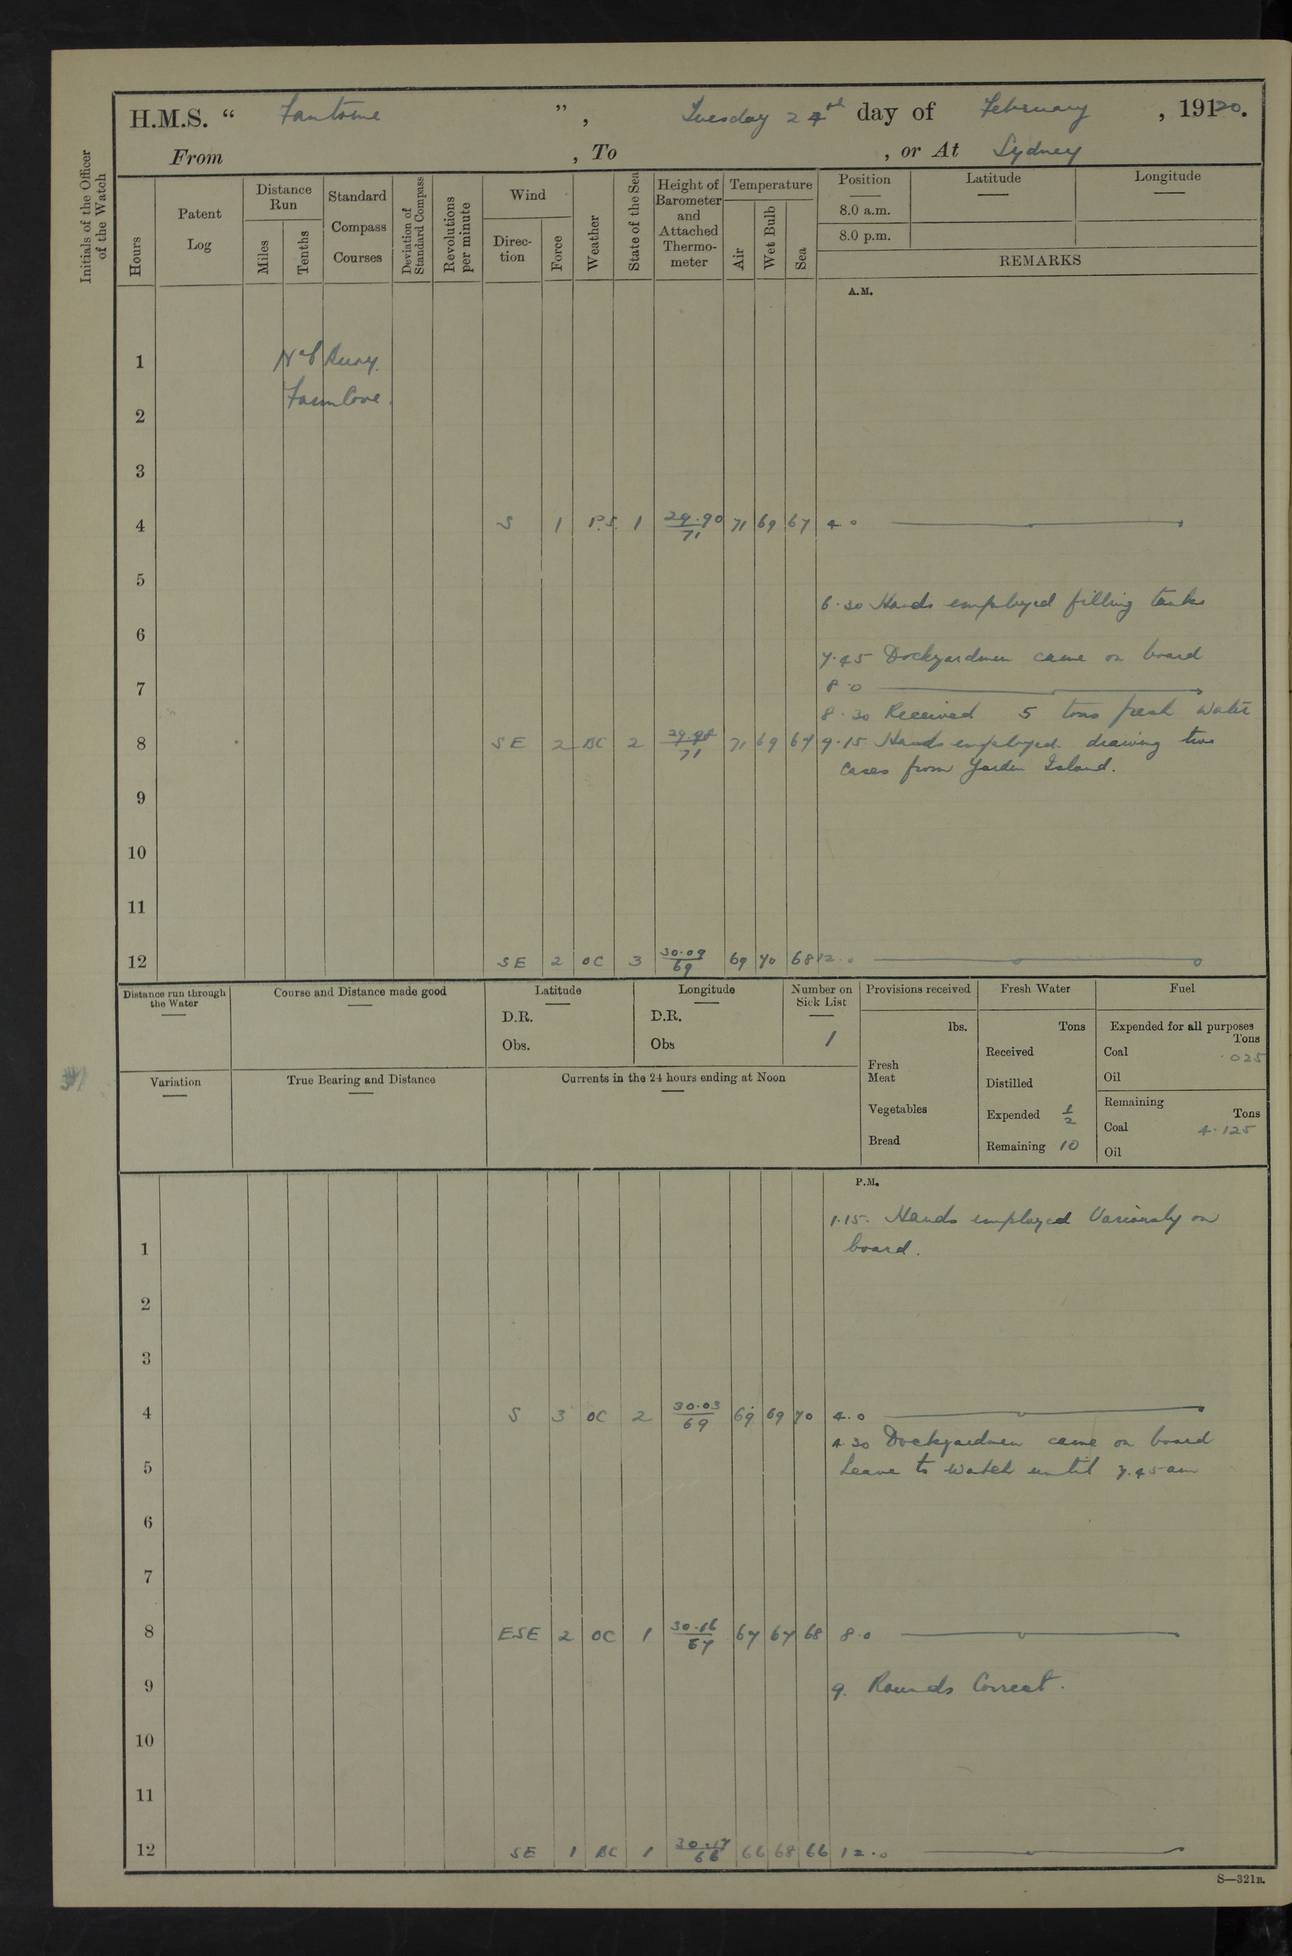 H.M.S. “ Fantome ”, Tuesday 24th day of February, 19120.
From , To , or At Sydney
Initials of the Officer of the Watch
Hours
Patent Log
Distance Run
Miles
Tenths
Standard Compass Courses
Deviation of Standard Compass
Revolutions per minute
Wind
Direction
Force
Weather
State of the Sea
Height of Barometer and Attached Thermometer
Temperature
Air
Wet Bulb
Sea
Position
Latitude
Longitude
8.0 a.m.
8.0 p.m.
REMARKS
A.M.
1 No 1 Buoy.
2 Farm Cove.
3
4 S 1 P.S. 1 29.90/71 71 69 67 4.0
5
6.30 Hands employed filling tanks
6
7.45 Dockyardmen came on board
7 8.0
8.30 Received 5 tons fresh water
8 SE 2 BC 2 29.98/71 71 69 67 9.15 Hands employed drawing two
cases from Garden Island.
9
10
11
12 SE 2 OC 3 30.09/69 69 70 68 12.0
Distance run through the Water
Course and Distance made good
Latitude
D.R.
Obs.
Longitude
D.R.
Obs
Number on Sick List
1
Provisions received
lbs.
Fresh Meat
Vegetables
Bread
Fresh Water
Tons
Received
Distilled
Expended 1/2
Remaining 10
Fuel
Expended for all purposes
Tons
Coal .025
Oil
Remaining
Tons
Coal 4.125
Oil
Variation
True Bearing and Distance
Currents in the 24 hours ending at Noon
P.M.
1.15. Hands employed Variously on
board.
1
2
3
4 S 3 OC 2 30.03/69 69 69 70 4.0
4.30 Dockyardmen came on board
5 Leave to Watch until 7.45 am
6
7
8 ESE 2 OC 1 30.16/67 67 67 68 8.0
9 9. Rounds Correct.
10
11
12 SE 1 BC 1 30.17/66 66 68 66 12.0
S—321B.